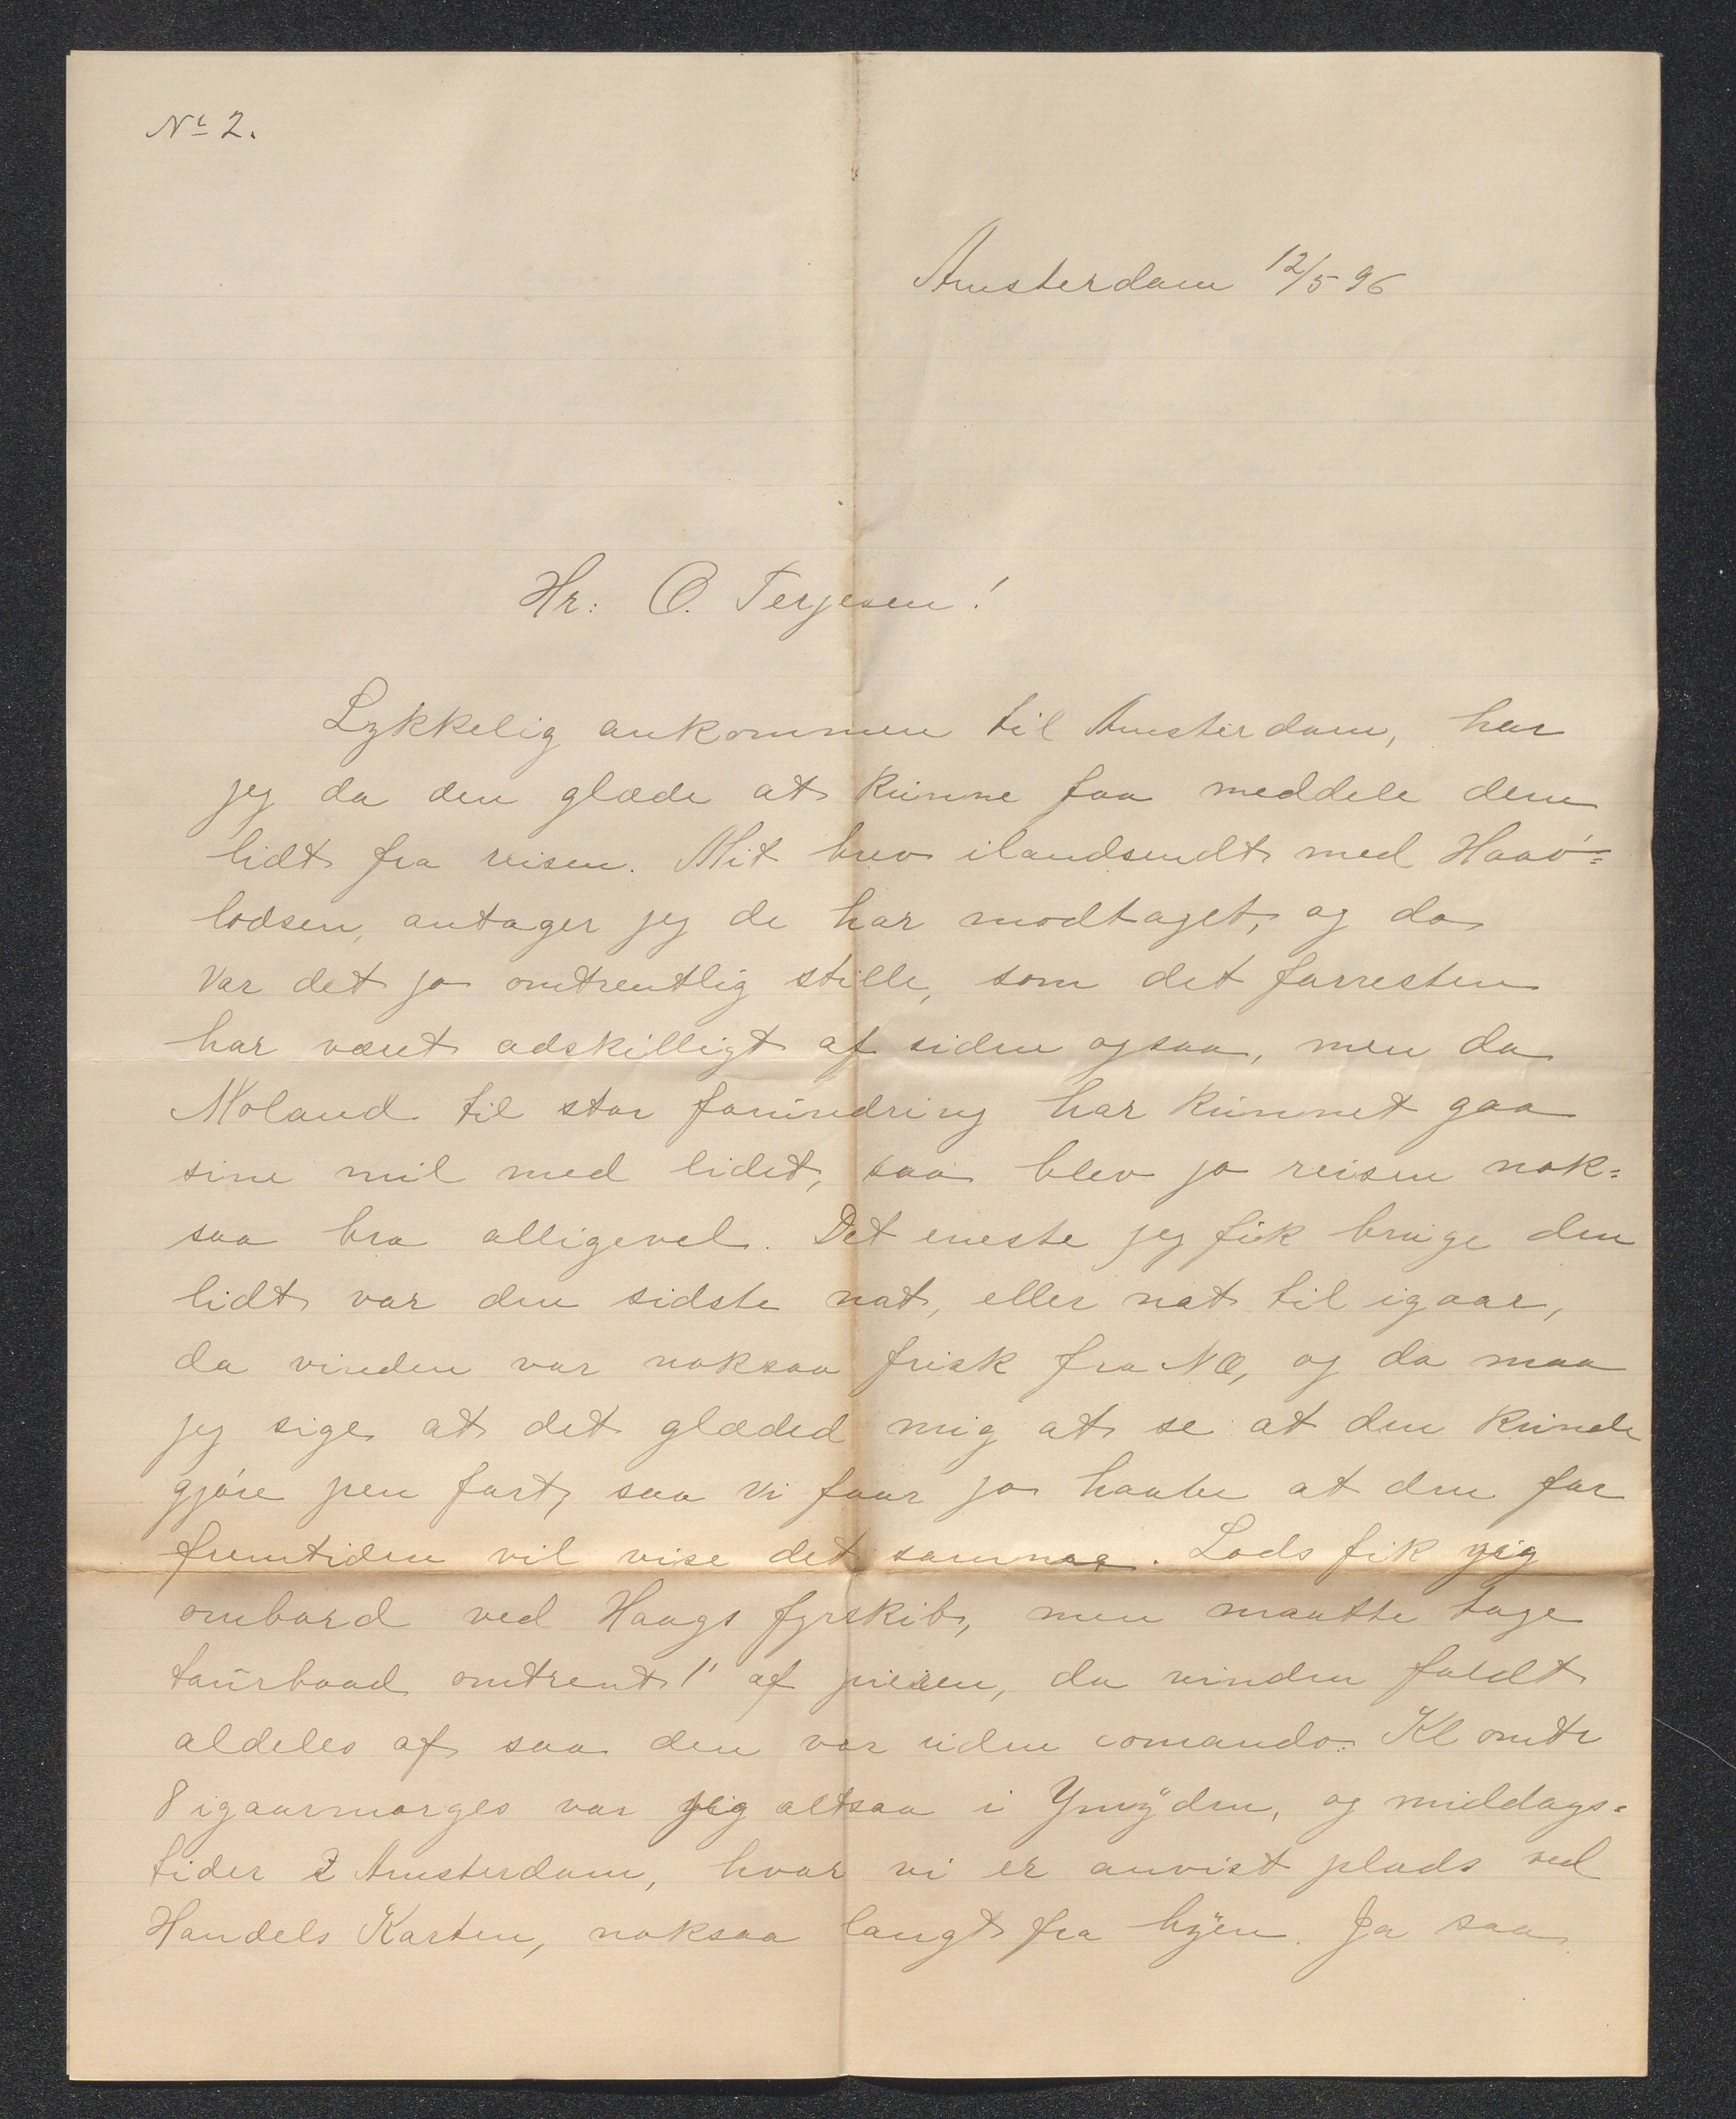 No 2.
Amsterdam 12/5 96
Hr: O. Terjesen!
Lykkelig ankommen til Amsterdam, har
jeg da den glæde at kunne faa meddele dem
lidt fra reisen. Mit brev ilandsendt med Haaö=
lodsen, antager jeg de har modtaget, og da
var det jo omtrentlig stille, som det forresten
har været adskilligt af siden ogsaa, men da
Moland til stor forundring har kunnet gaa
sine mil med lidet, saa blev jo reisen nok=
saa bra alligevel. Det eneste jeg fik bruge den
lidt var den sidste nat, eller nat til igaar,
da vinden var noksaa frisk fra NO, og da maa
jeg sige at det glæded mig at se at den kunde
gjöre pen fart, saa vi faar jo haabe at den for
fremtiden vil vise det samme. Lods fik jeg
ombord ved Haags fyrskib, men maatte tage
taugbaad omtrent 1' af pieren, da vinden faldt
aldeles af saa den var uden comando. Kl omtr
8 igaarmorges var jeg altsaa i Ymüden, og middags=
tider i Amsterdam, hvor vi er anvist plads ved
Handels Kaden, noksaa langt fra byen. Ja saa